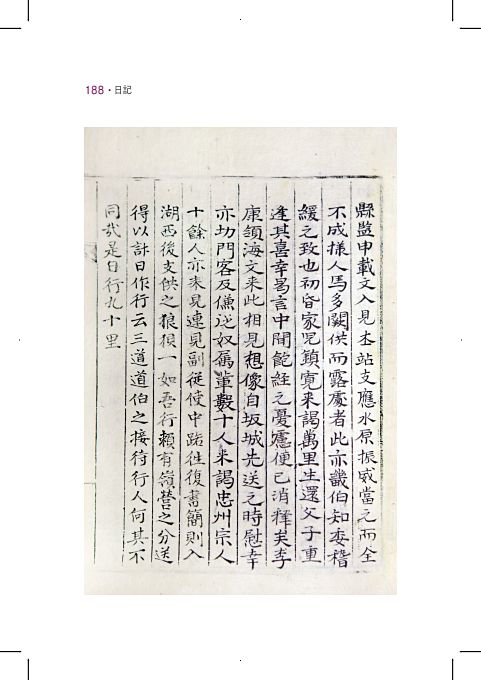 188 · 日記
縣監申載文入見本站支應水原振威當之而全
不成樣人馬多闕供而露處者此亦畿伯知委稽
緩之致也初昏家兒鎭寬來謁萬里生還父子重
逢其喜幸曷言中間飽經之憂慮便已消釋矣李
康領海文來此相見想像自坂城先送之時慰幸
亦切門客及傔從奴屬輩數十人來謁忠州宗人
十餘人亦來見連見副從使中路往復書簡則入
湖西後支供之狼狽一如吾行賴有嶺營之分送
得以計日作行云三道道伯之接待行人何其不
同哉是日行九十里